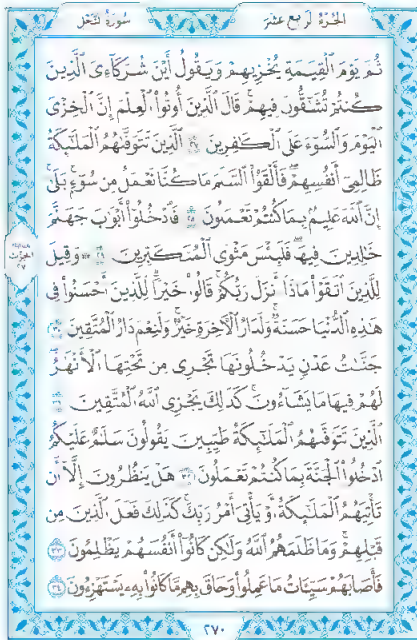 سُورَةُ النَّحْل
الجُزْءُ الرَّابِعَ عَشَرَ
ثُمَّ يَوْمَ ٱلْقِيَٰمَةِ يُخْزِيهِمْ وَيَقُولُ أَيْنَ شُرَكَآءِىَ ٱلَّذِينَ
كُنتُمْ تُشَٰٓقُّونَ فِيهِمْ قَالَ ٱلَّذِينَ أُوتُوا۟ ٱلْعِلْمَ إِنَّ ٱلْخِزْىَ
ٱلْيَوْمَ وَٱلسُّوٓءَ عَلَى ٱلْكَٰفِرِينَ ٢٧ ٱلَّذِينَ تَتَوَفَّىٰهُمُ ٱلْمَلَٰٓئِكَةُ
ظَالِمِىٓ أَنفُسِهِمْ فَأَلْقَوُا۟ ٱلسَّلَمَ مَا كُنَّا نَعْمَلُ مِن سُوٓءٍۭ بَلَىٰٓ
إِنَّ ٱللَّهَ عَلِيمٌۢ بِمَا كُنتُمْ تَعْمَلُونَ ٢٨ فَٱدْخُلُوٓا۟ أَبْوَٰبَ جَهَنَّمَ
خَٰلِدِينَ فِيهَا فَلَبِئْسَ مَثْوَى ٱلْمُتَكَبِّرِينَ ٢٩ وَقِيلَ
لِلَّذِينَ ٱتَّقَوْا۟ مَاذَآ أَنزَلَ رَبُّكُمْ قَالُوا۟ خَيْرًا لِّلَّذِينَ أَحْسَنُوا۟ فِى
هَٰذِهِ ٱلدُّنْيَا حَسَنَةٌ وَلَدَارُ ٱلْءَاخِرَةِ خَيْرٌ وَلَنِعْمَ دَارُ ٱلْمُتَّقِينَ ٣٠
جَنَّٰتُ عَدْنٍ يَدْخُلُونَهَا تَجْرِى مِن تَحْتِهَا ٱلْأَنْهَٰرُ
لَهُمْ فِيهَا مَا يَشَآءُونَ كَذَٰلِكَ يَجْزِى ٱللَّهُ ٱلْمُتَّقِينَ ٣١
ٱلَّذِينَ تَتَوَفَّىٰهُمُ ٱلْمَلَٰٓئِكَةُ طَيِّبِينَ يَقُولُونَ سَلَٰمٌ عَلَيْكُمُ
ٱدْخُلُوا۟ ٱلْجَنَّةَ بِمَا كُنتُمْ تَعْمَلُونَ ٣٢ هَلْ يَنظُرُونَ إِلَّآ أَن
تَأْتِيَهُمُ ٱلْمَلَٰٓئِكَةُ أَوْ يَأْتِىَ أَمْرُ رَبِّكَ كَذَٰلِكَ فَعَلَ ٱلَّذِينَ مِن
قَبْلِهِمْ وَمَا ظَلَمَهُمُ ٱللَّهُ وَلَٰكِن كَانُوٓا۟ أَنفُسَهُمْ يَظْلِمُونَ ٣٣
فَأَصَابَهُمْ سَيِّـَٔاتُ مَا عَمِلُوا۟ وَحَاقَ بِهِم مَّا كَانُوا۟ بِهِۦ يَسْتَهْزِءُونَ ٣٤
٢٧٠